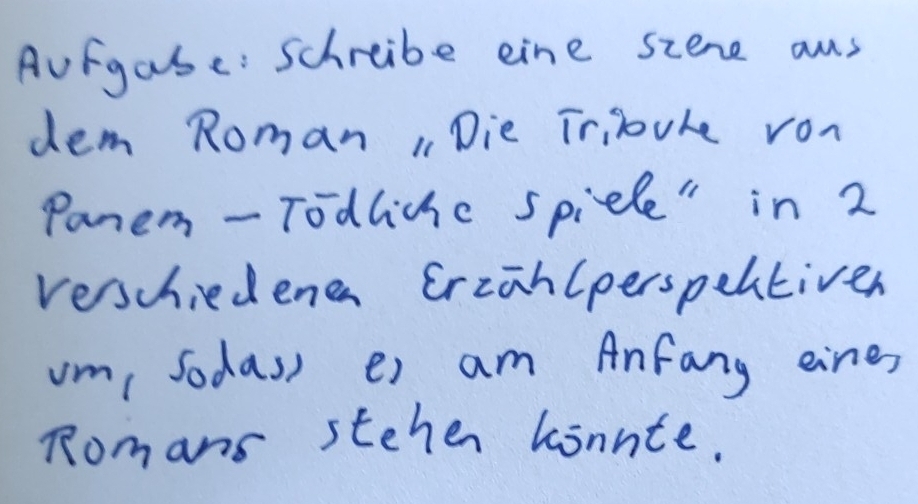 Aufgabe: Schreibe eine Szene aus
dem Roman „Die Tribute von
Panem – Tödliche Spiele" in 2
verschiedenen Erzählperspektiven
um, sodass es am Anfang eines
Romans stehen könnte.